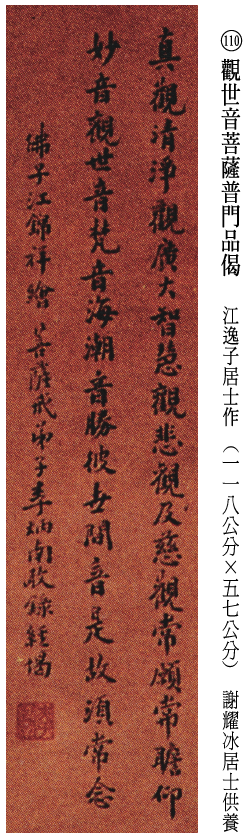 ⑩ 觀世音菩薩普門品偈 江逸子居士作 （一一八公分×五七公分） 謝耀冰居士供養
真觀清淨觀廣大智慧觀悲觀及慈觀常願常瞻仰
妙音觀世音梵音海潮音勝彼世間音是故須常念
佛子江錦祥繪 菩薩戒弟子李炳南敬錄經偈